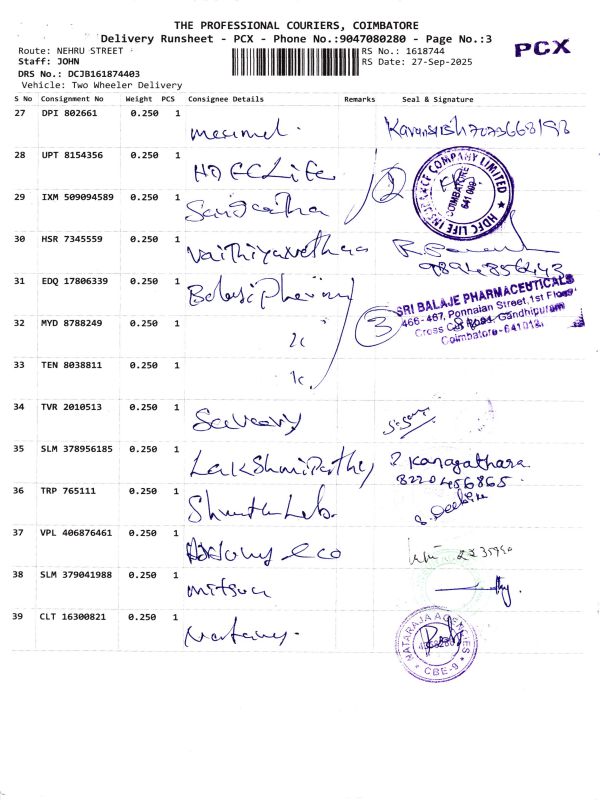 THE PROFESSIONAL COURIERS, COIMBATORE
Delivery Runsheet - PCX - Phone No.:9047080280 - Page No.:3
PCX
Route: NEHRU STREET
RS No.: 1618744
Staff: JOHN
RS Date: 27-Sep-2025
DRS No.: DCJB161874403
Vehicle: Two Wheeler Delivery
S No Consignment No Weight PCS Consignee Details Remarks Seal & Signature
27 DPI 802661 0.250 1
28 UPT 8154356 0.250 1 HDFC Life
HDFC LIFE INSURANCE COMPANY LIMITED
COIMBATORE
641 009
29 IXM 509094589 0.250 1 Sangeetha 2
30 HSR 7345559 0.250 1
9894856443
31 EDQ 17806339 0.250 1 Balaji Pharmy
SRI BALAJE PHARMACEUTICALS
466-467, Ponnaian Street, 1st Floor
Cross Cut Road, Gandhipuram
Coimbatore-641012.
32 MYD 8788249 0.250 1 3
33 TEN 8038811 0.250 1
34 TVR 2010513 0.250 1
35 SLM 378956185 0.250 1 Lakshmi Parthy
Kanagathara
8220456865.
36 TRP 765111 0.250 1
37 VPL 406876461 0.250 1 eco
38 SLM 379041988 0.250 1 mitsua
39 CLT 16300821 0.250 1
MATARAJA AGENCIES
CBE-9